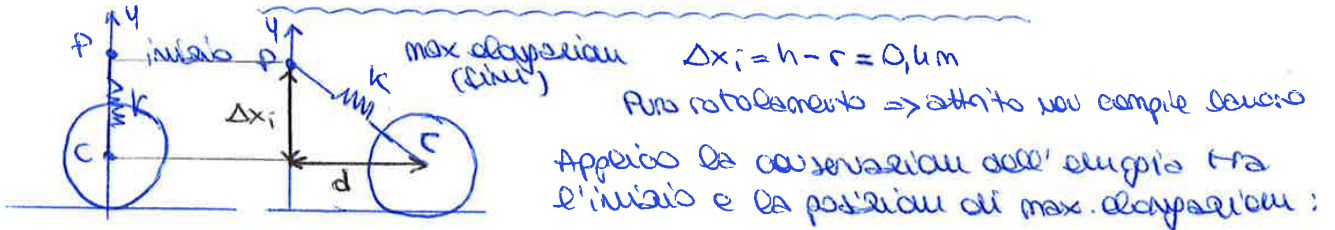 y
P inizio
K
C
y
P
K
Δxi
C
d
max elongazione
(fine)
Δxi = h - r = 0,4m
Puro rotolamento => attrito non compie lavoro
Applico la conservazione dell'energia tra
l'inizio e la posizione di max. elongazione :